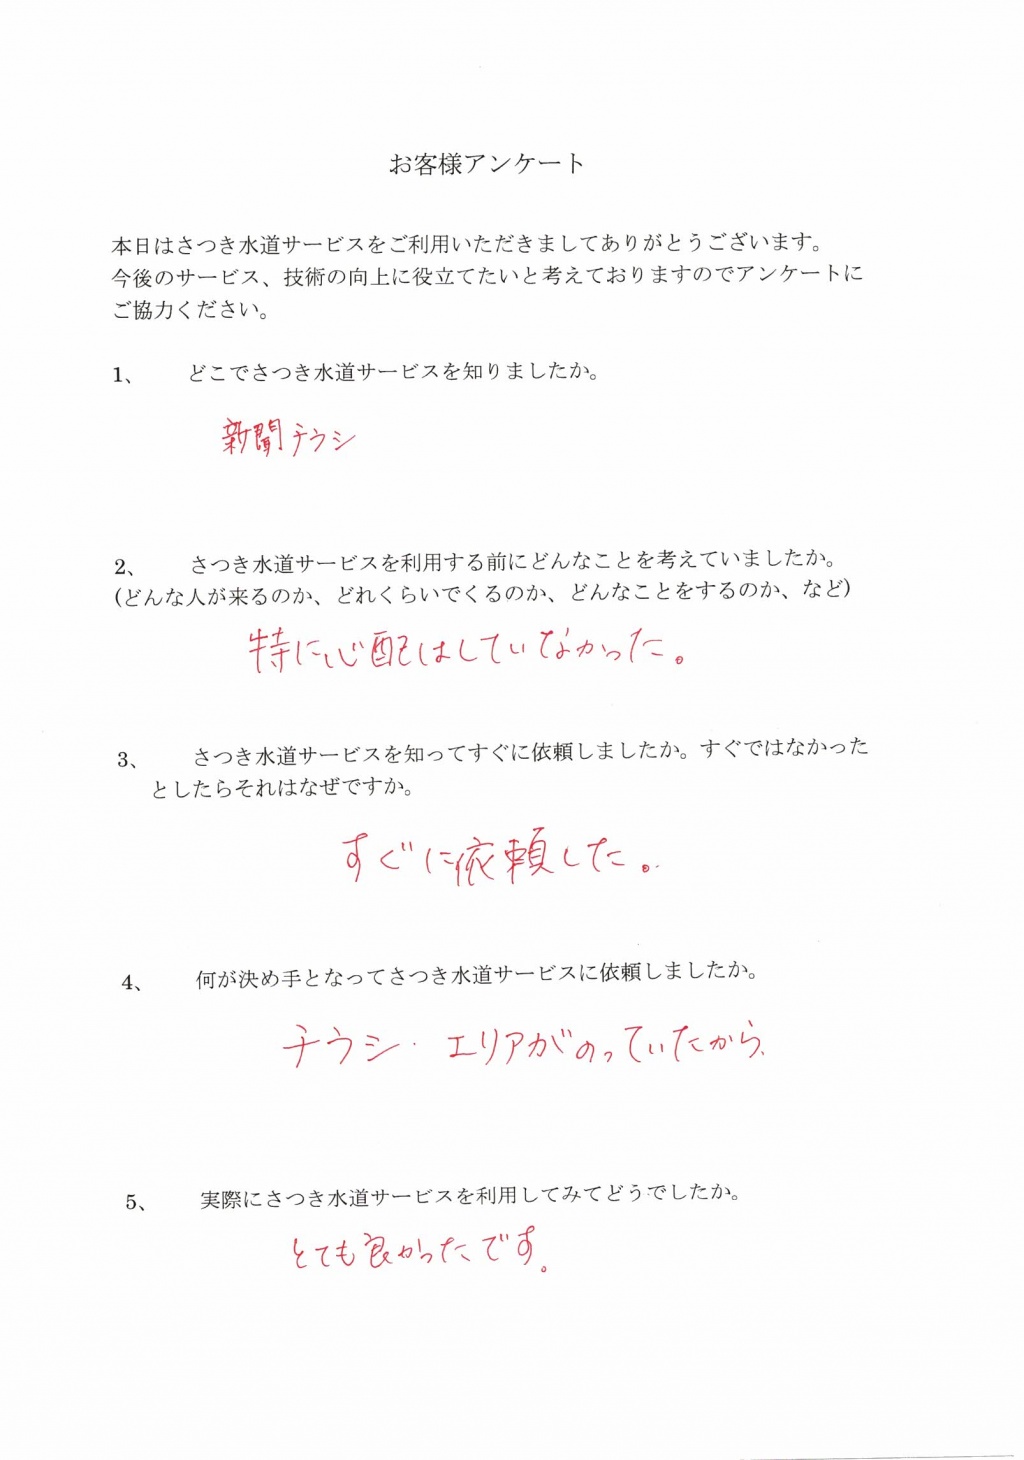 お客様アンケート
本日はさつき水道サービスをご利用いただきましてありがとうございます。
今後のサービス、技術の向上に役立てたいと考えておりますのでアンケートに
ご協力ください。
1、 どこでさつき水道サービスを知りましたか。
新聞チラシ
2、 さつき水道サービスを利用する前にどんなことを考えていましたか。
(どんな人が来るのか、どれくらいでくるのか、どんなことをするのか、など)
特に心配はしていなかった。
3、 さつき水道サービスを知ってすぐに依頼しましたか。すぐではなかった
としたらそれはなぜですか。
すぐに依頼した。
4、 何が決め手となってさつき水道サービスに依頼しましたか。
チラシ・エリアがのっていたから、
5、 実際にさつき水道サービスを利用してみてどうでしたか。
とても良かったです。